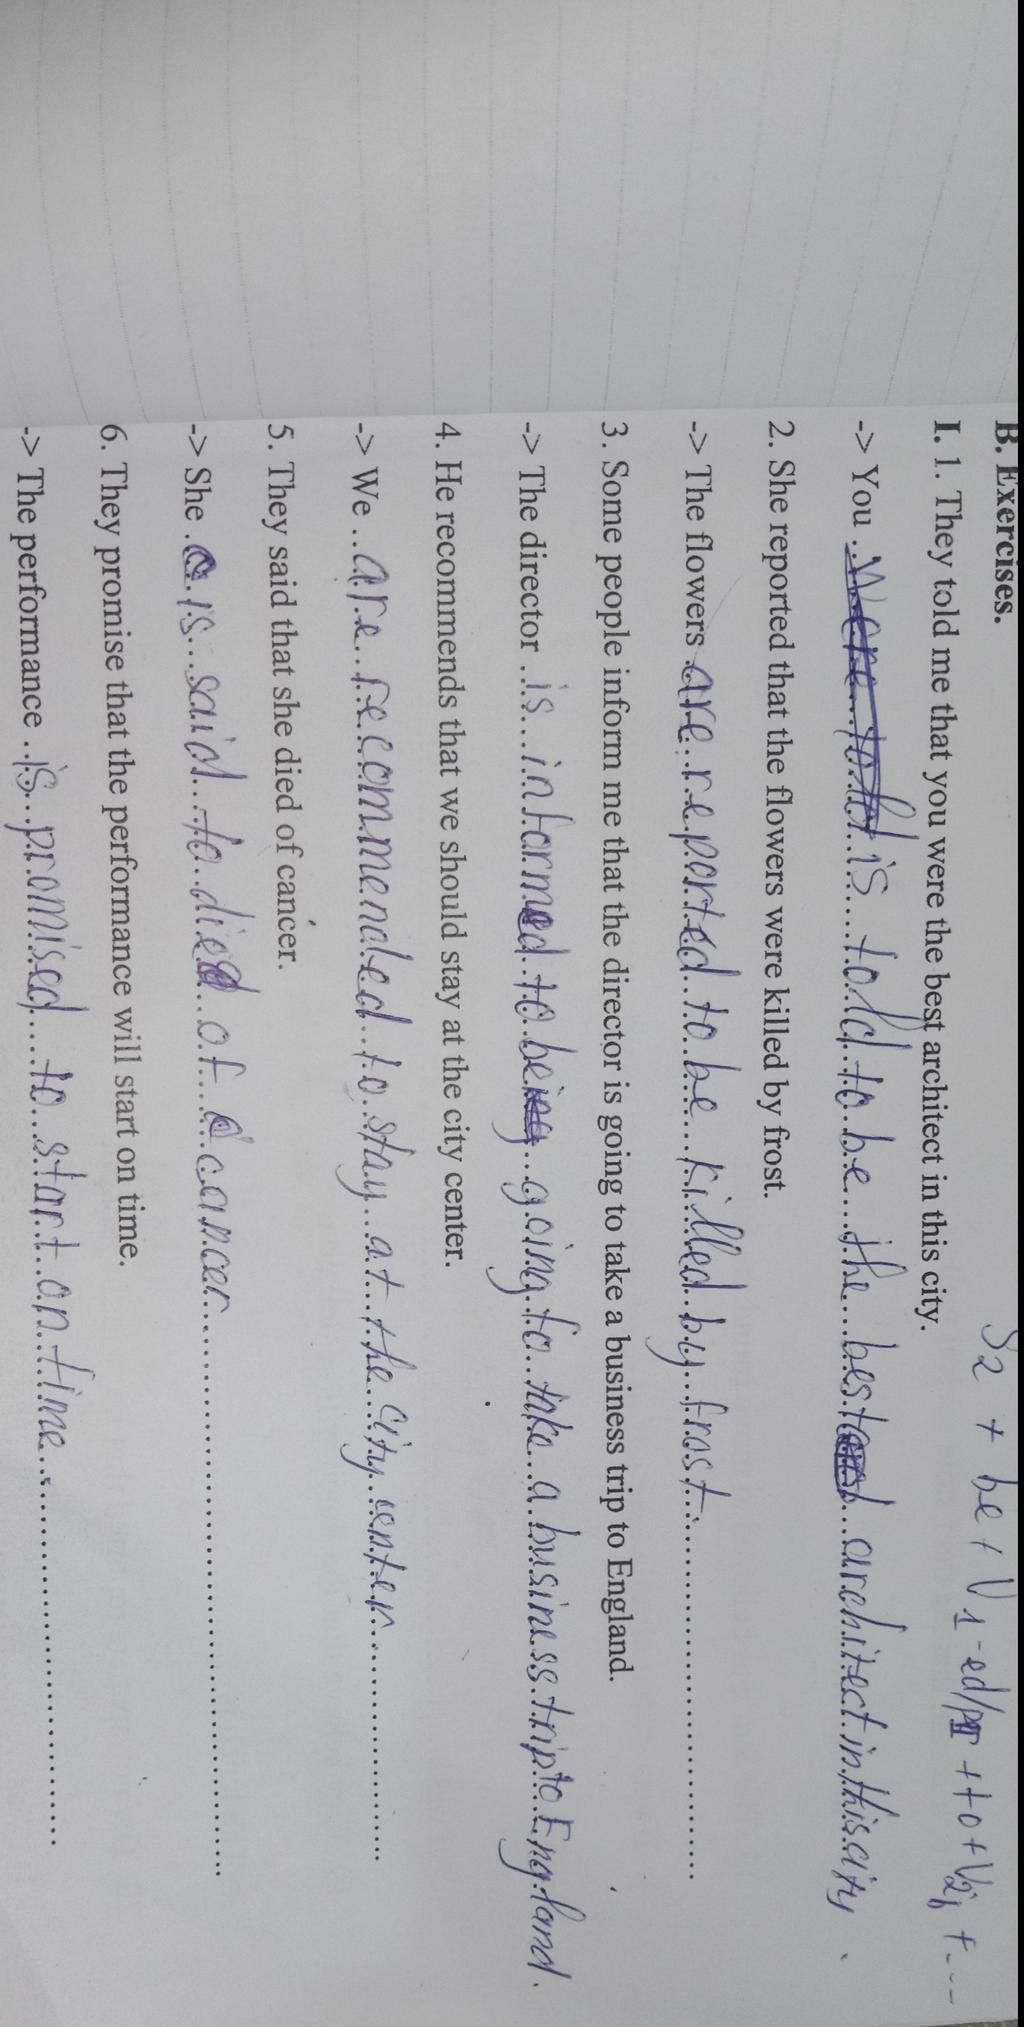 S2 + be + V1-ed/pII + to + V2i + ---
B. Exercises.
I. 1. They told me that you were the best architect in this city.
-> You is told to be the best architect in this city.
2. She reported that the flowers were killed by frost.
-> The flowers are reported to be killed by frost.
3. Some people inform me that the director is going to take a business trip to England.
-> The director is informed to be going to take a business trip to England.
4. He recommends that we should stay at the city center.
-> We are recommended to stay at the city center.
5. They said that she died of cancer.
-> She is said to die of cancer.
6. They promise that the performance will start on time.
-> The performance is promised to start on time.